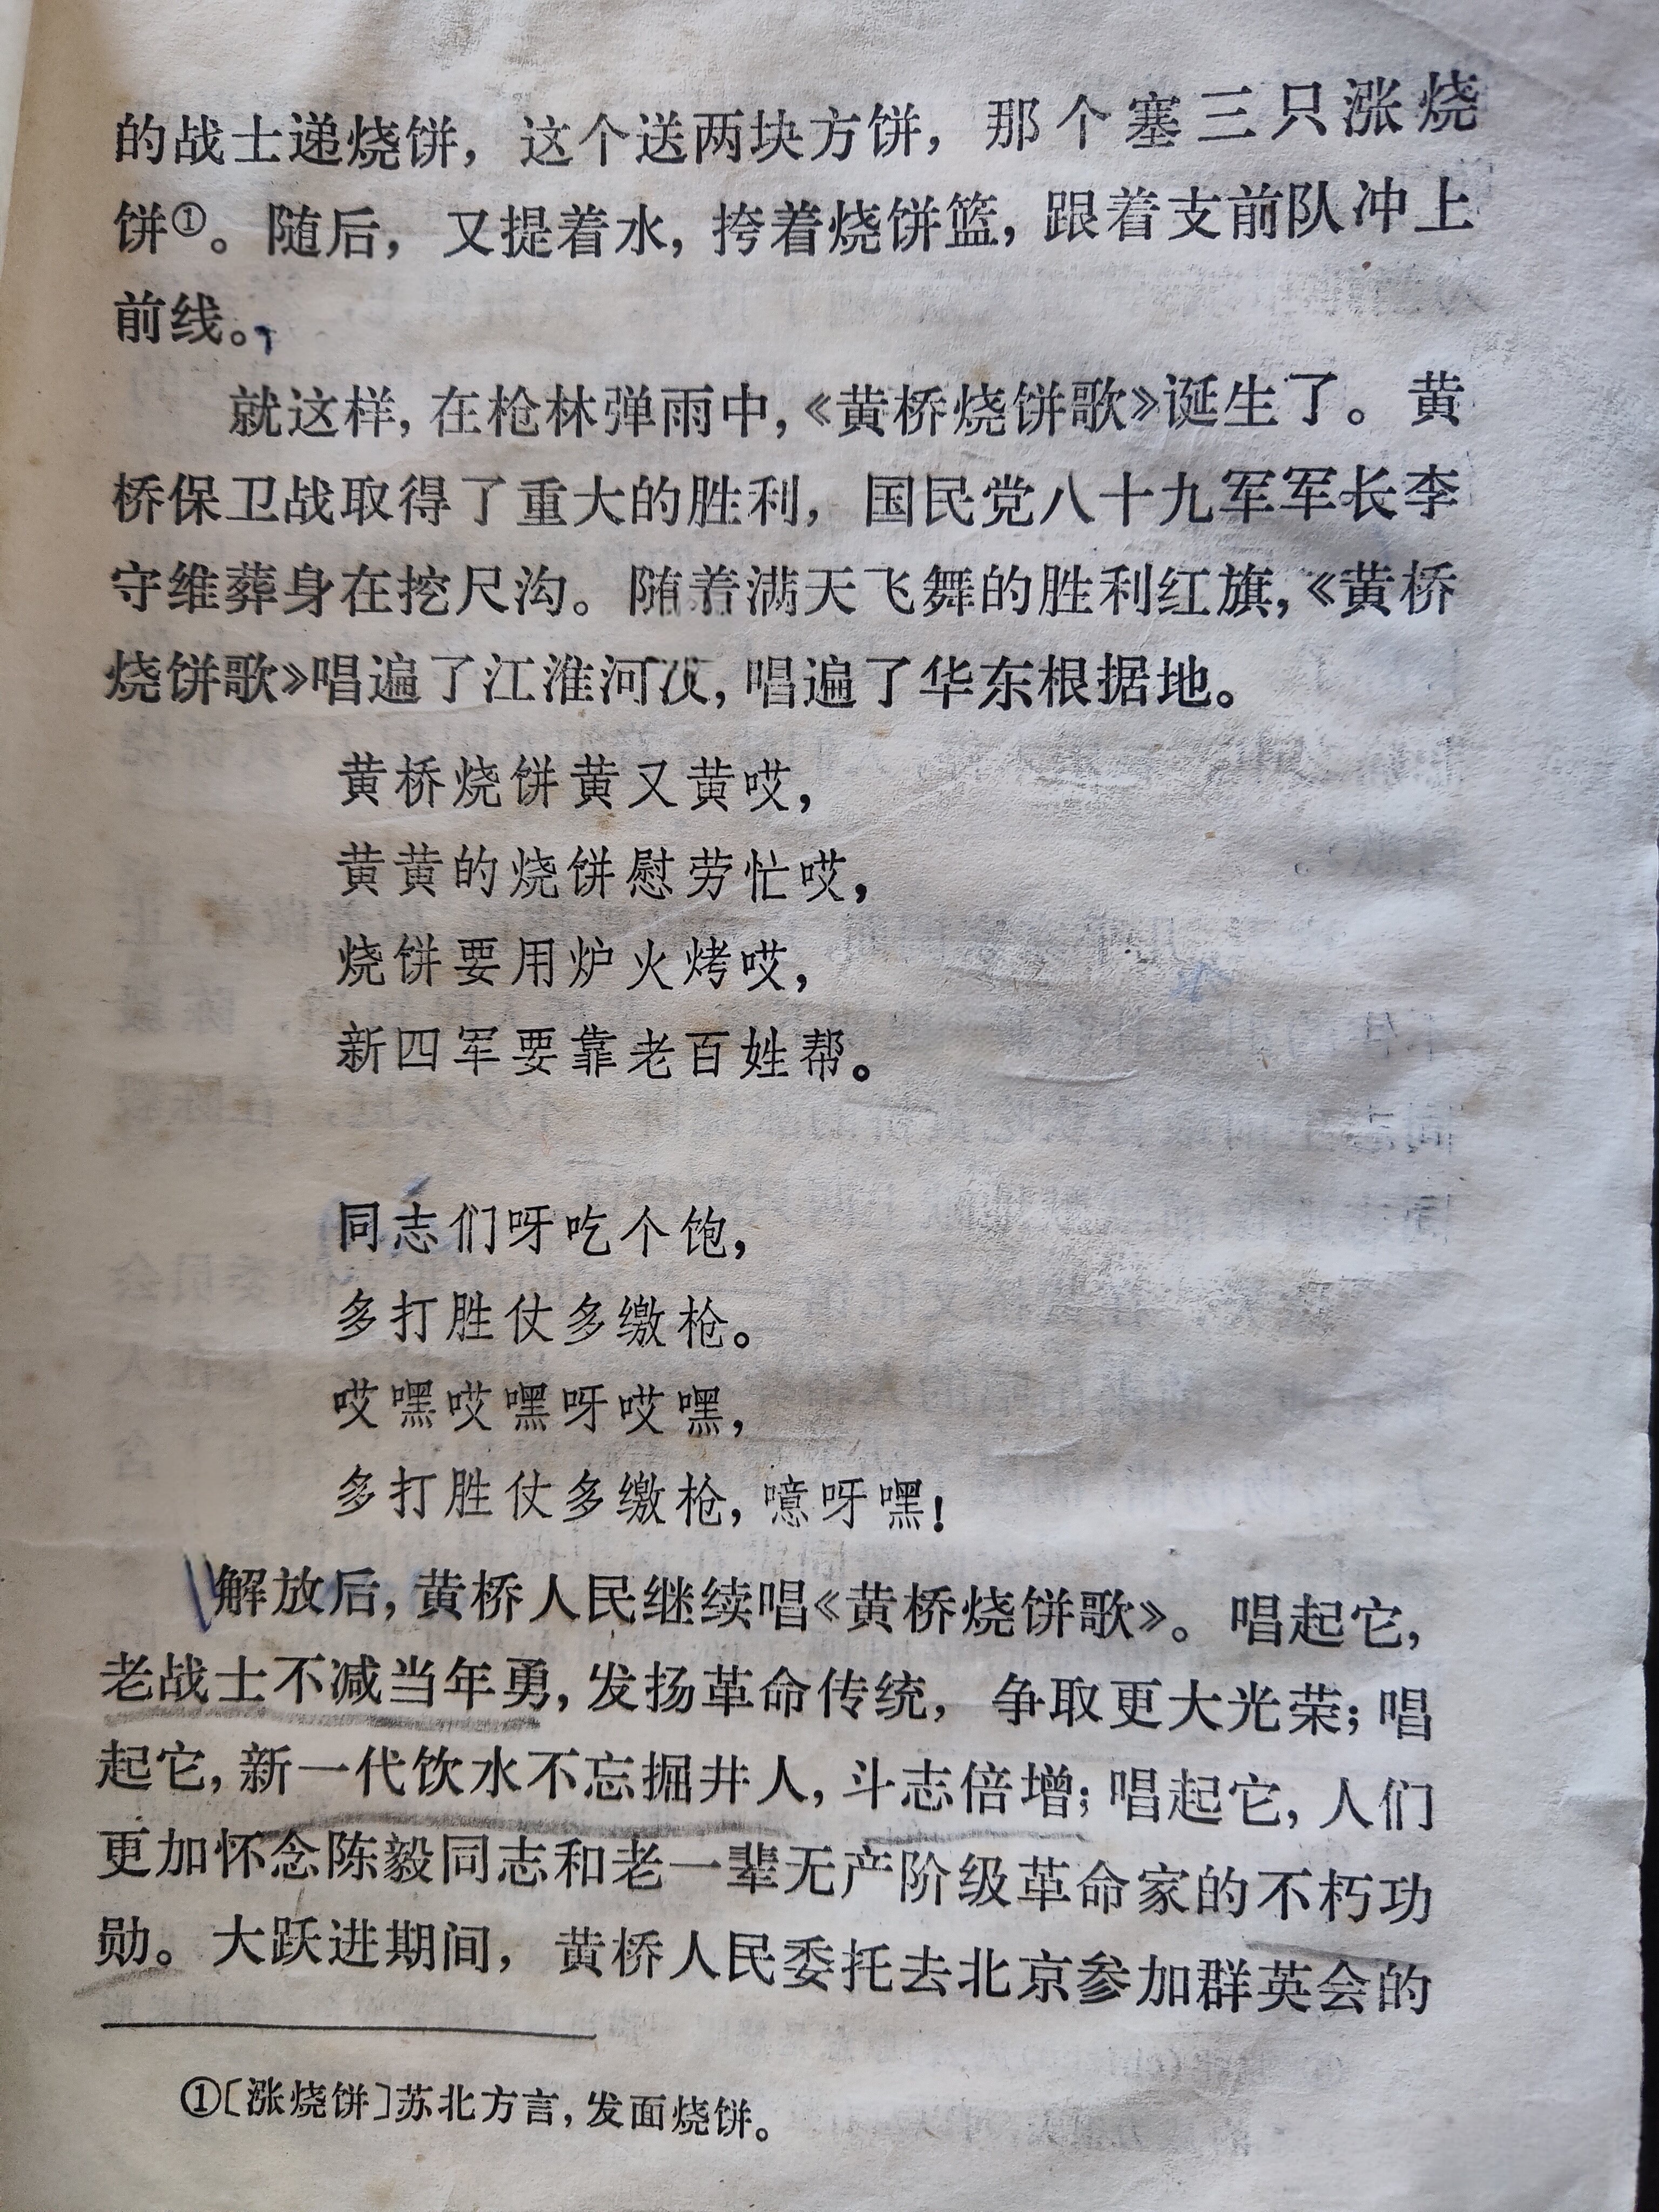 的战士递烧饼，这个送两块方饼，那个塞三只涨烧
饼①。随后，又提着水，挎着烧饼篮，跟着支前队冲上
前线。
就这样，在枪林弹雨中，《黄桥烧饼歌》诞生了。黄
桥保卫战取得了重大的胜利，国民党八十九军军长李
守维葬身在挖尺沟。随着满天飞舞的胜利红旗，《黄桥
烧饼歌》唱遍了江淮河汉，唱遍了华东根据地。
黄桥烧饼黄又黄哎，
黄黄的烧饼慰劳忙哎，
烧饼要用炉火烤哎，
新四军要靠老百姓帮。
同志们呀吃个饱，
多打胜仗多缴枪。
哎嘿哎嘿呀哎嘿，
多打胜仗多缴枪，噫呀嘿！
解放后，黄桥人民继续唱《黄桥烧饼歌》。唱起它，
老战士不减当年勇，发扬革命传统，争取更大光荣；唱
起它，新一代饮水不忘掘井人，斗志倍增；唱起它，人们
更加怀念陈毅同志和老一辈无产阶级革命家的不朽功
勋。大跃进期间，黄桥人民委托去北京参加群英会的
①〔涨烧饼〕苏北方言，发面烧饼。